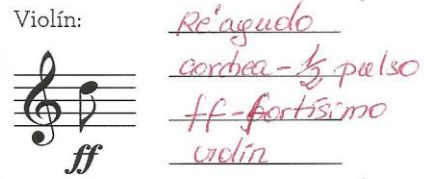 Violín:
Re'agudo
corchea - 1/2 pulso
ff
ff - fortísimo
violín